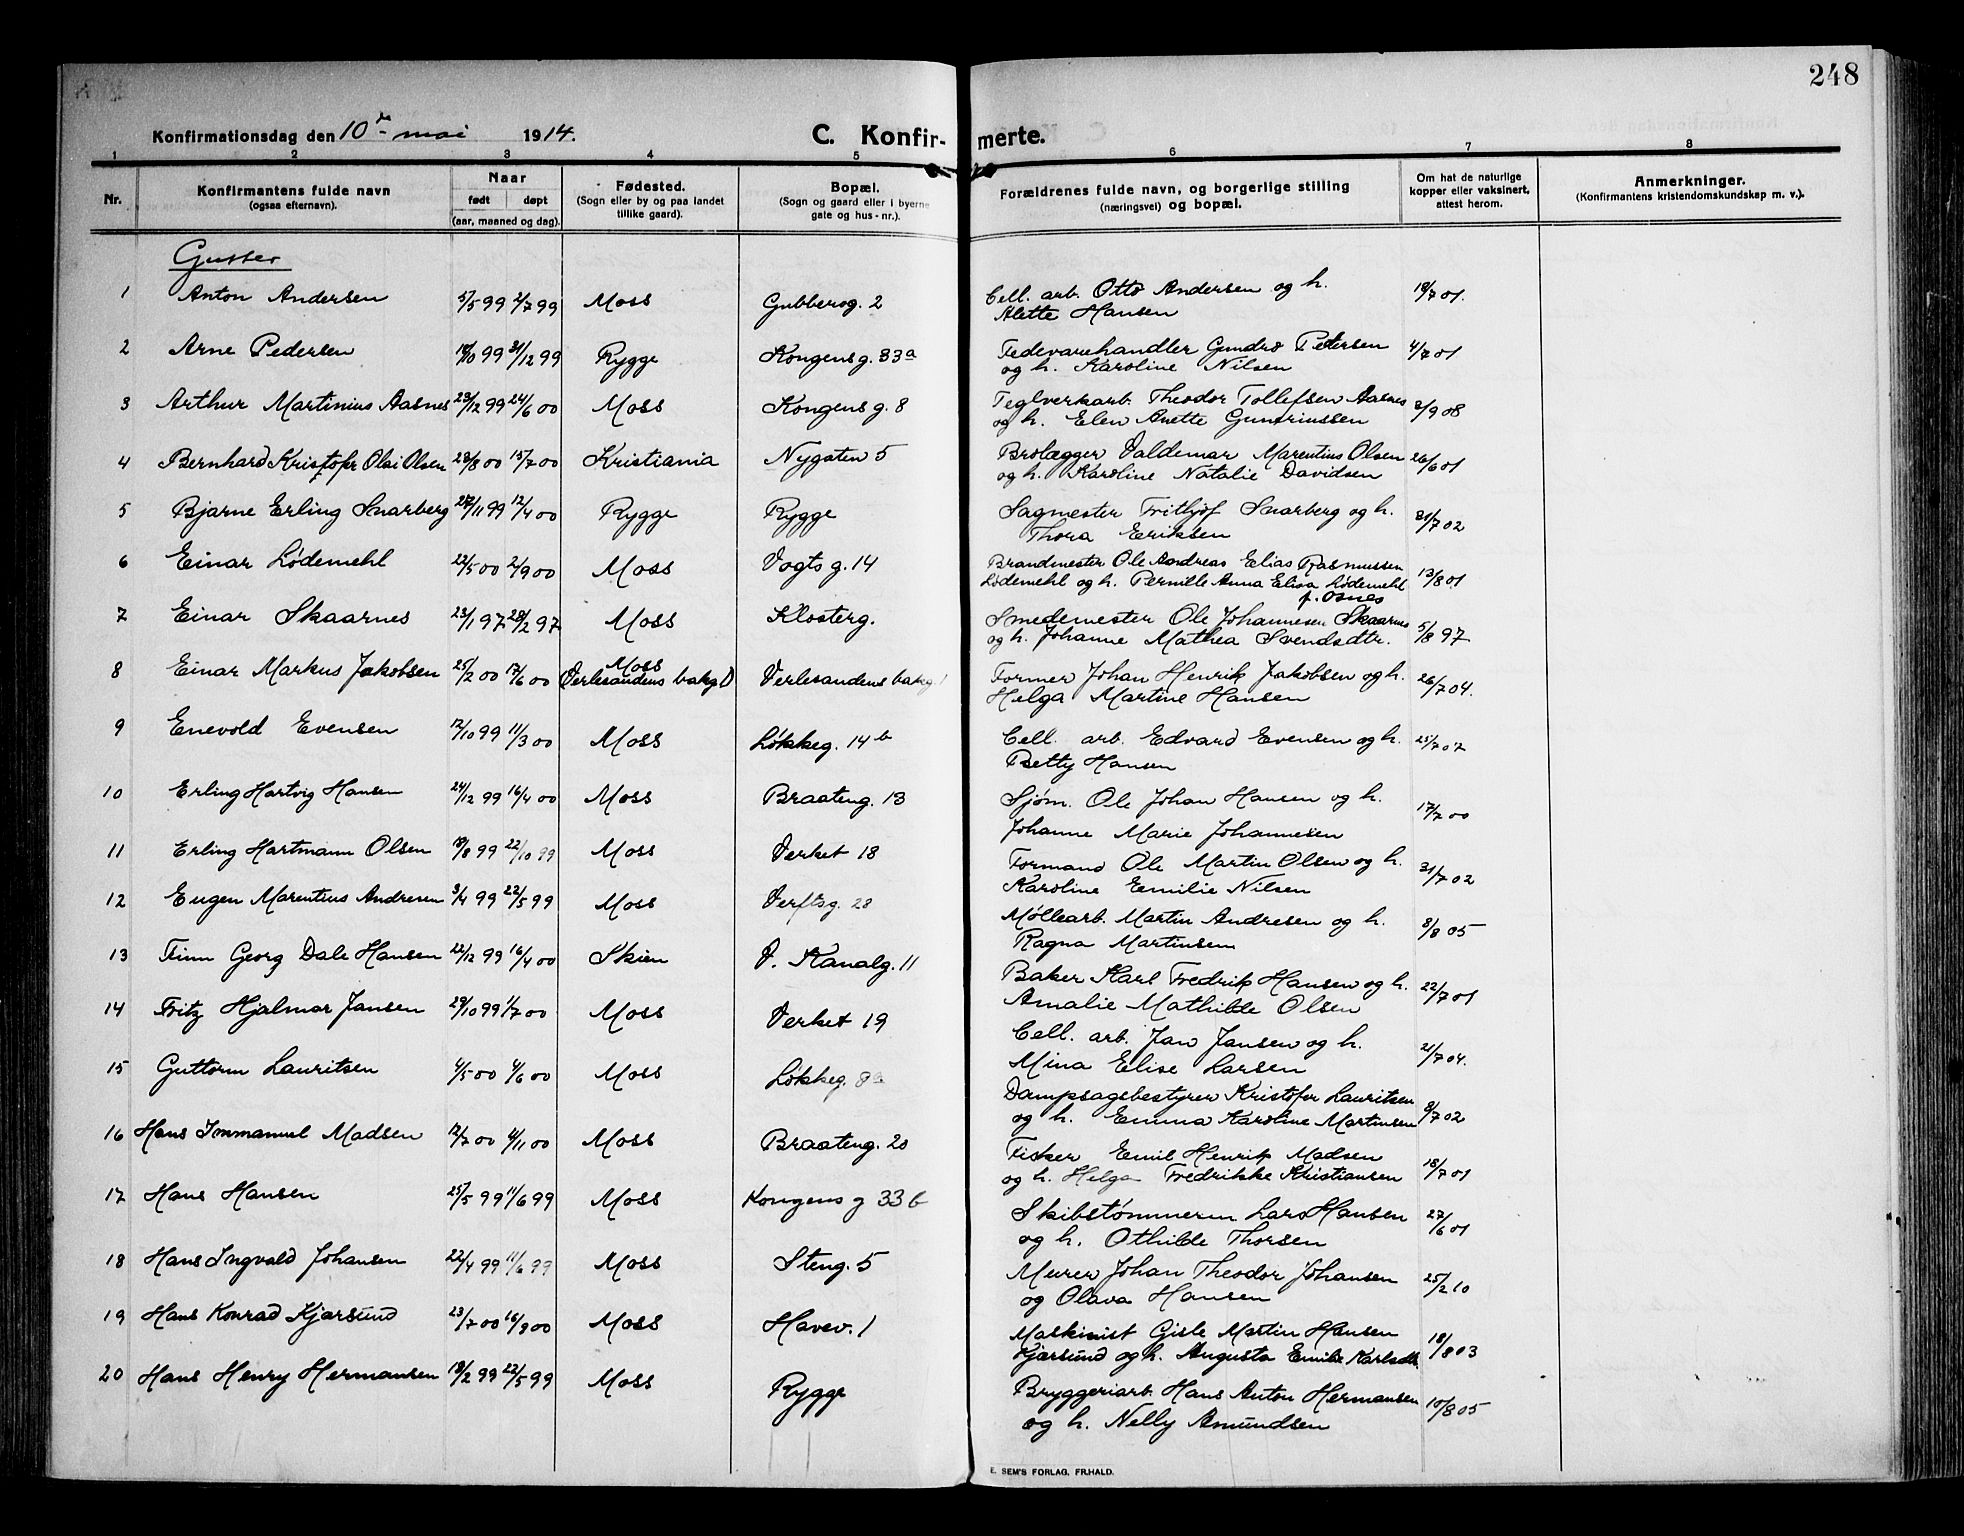 248
Konfirmationsdag den 10de mai 1914.
C. Konfirmerte.
1 2 3 4 5 6 7 8
Nr.
Konfirmantens fulde navn
(ogsaa efternavn).
Naar
født døpt
(aar, maaned og dag).
Fødested.
(Sogn eller by og paa landet
tillike gaard).
Bopæl.
(Sogn og gaard eller i byerne
gate og hus-nr.).
Forældrenes fulde navn, og borgerlige stilling
(næringsvei) og bopæl.
Om hat de naturlige
kopper eller vaksinert,
attest herom.
Anmerkninger.
(Konfirmantens kristendomskundskap m. v.).
Gutter
1 Anton Andersen 5/5 99 2/7 99 Moss Gubberog. 2 Cell. arb. Otto Andersen og h. 18/7 01.
Alette Hansen
2 Arne Pedersen 18/10 99 31/12 99 Rygge Kongensg. 33a Fedevarehandler Gundro Petersen 4/7 01
og h. Karoline Nilsen
3 Arthur Martinius Aasnes 23/12 99 24/6 00 Moss Kongensg. 8 Teglverkarb. Theodor Tollefsen Aasnes 2/9 08
og h. Elen Anette Gundriussen
4 Bernhard Kristofer Olai Olsen 28/8 00 15/7 00 Kristiania Nygaten 5 Brolægger Valdemar Marentius Olsen 26/6 01
og h. Karoline Natalie Davidsen
5 Bjarne Erling Snarberg 27/11 99 12/4 00 Rygge Rygge Sagmester Fritljof Snarberg og h. 31/7 02
Thora Eriksen
6 Einar Lødemehl 22/5 00 2/9 00 Moss Vogtsg. 14 Brandmester Ole Andreas Elias Rasmussen 13/8 01
Lødemehl og h. Pernille Anna Elisa Lødemehl
f. Osnes
7 Einar Skaarnes 23/1 97 28/2 97 Moss Klosterg. Smedemester Ole Johannesen Skaarnes 5/8 97
og h. Johanne Mathea Svendsdtr.
8 Einar Markus Jakobsen 25/2 00 17/6 00 Moss Former Johan Henrik Jakobsen og h. 26/7 04.
(Verlesandens bakg 1) Verlesandens bakg. 1 Helga Martine Hansen
9 Enevold Evensen 17/10 99 11/3 00 Moss Løkkeg. 14b Cell. arb. Edvard Evensen og h. 25/7 07
Betty Hansen
10 Erling Hartvig Hansen 24/12 99 16/4 00 Moss Braateng. 13 Sjøm. Ole Johan Hansen og h. 17/7 00
Johanne Marie Johannesen
11 Erling Hartmann Olsen 18/8 99 22/10 99 Moss Verket 18 Formand Ole Martin Olsen og h. 31/7 02
Karoline Emilie Nilsen
12 Eugen Marentius Andresen 3/4 99 22/5 99 Moss Verftsg. 28 Møllearb. Martin Andresen og h. 8/8 05
Ragna Martinsen
13 Finn Georg Dale Hansen 22/12 99 16/4 00 Skien V. Kanalg. 11 Baker Karl Fredrik Hansen og h. 22/7 01
Amalie Mathilde Olsen
14 Fritz Hjalmar Jansen 29/10 99 1/7 00 Moss Verket 19 Cell. arb. Jan Jansen og h. 21/7 04.
Mina Elise Larsen
15 Guttorm Lauritsen 4/5 00 4/6 00 Moss Løkkeg. 8a Dampsagsbestyrer Kristofer Lauritsen 8/7 02
og h. Emma Karoline Martinsen
16 Hans Immanuel Madsen 12/7 00 4/11 00 Moss Braateng. 20 Fisker Emil Henrik Madsen 18/7 01
og h. Helga Fredrikke Kristiansen
17 Hans Hansen 25/5 99 11/6 99 Moss Kongens g 33 b Skibstømmerm Lars Hansen 27/6 01
og h. Othilde Thorsen
18 Hans Ingvald Johansen 22/4 99 11/6 99 Moss Steng. 5 Murer Johan Theodor Johansen 25/2 10
og Olava Hansen
19 Hans Konrad Kjørsund 23/7 00 16/9 00 Moss Havev. 1 Maskinist Gisle Martin Hansen 18/8 03
Kjørsund og h. Augusta Emilie Karlsdt.
20 Hans Henry Hermansen 18/2 99 22/5 99 Moss Rygge Bryggeriarb. Hans Anton Hermansen 10/8 05
og h. Nelly Amundsen
E. SEM'S FORLAG, FR.HALD.